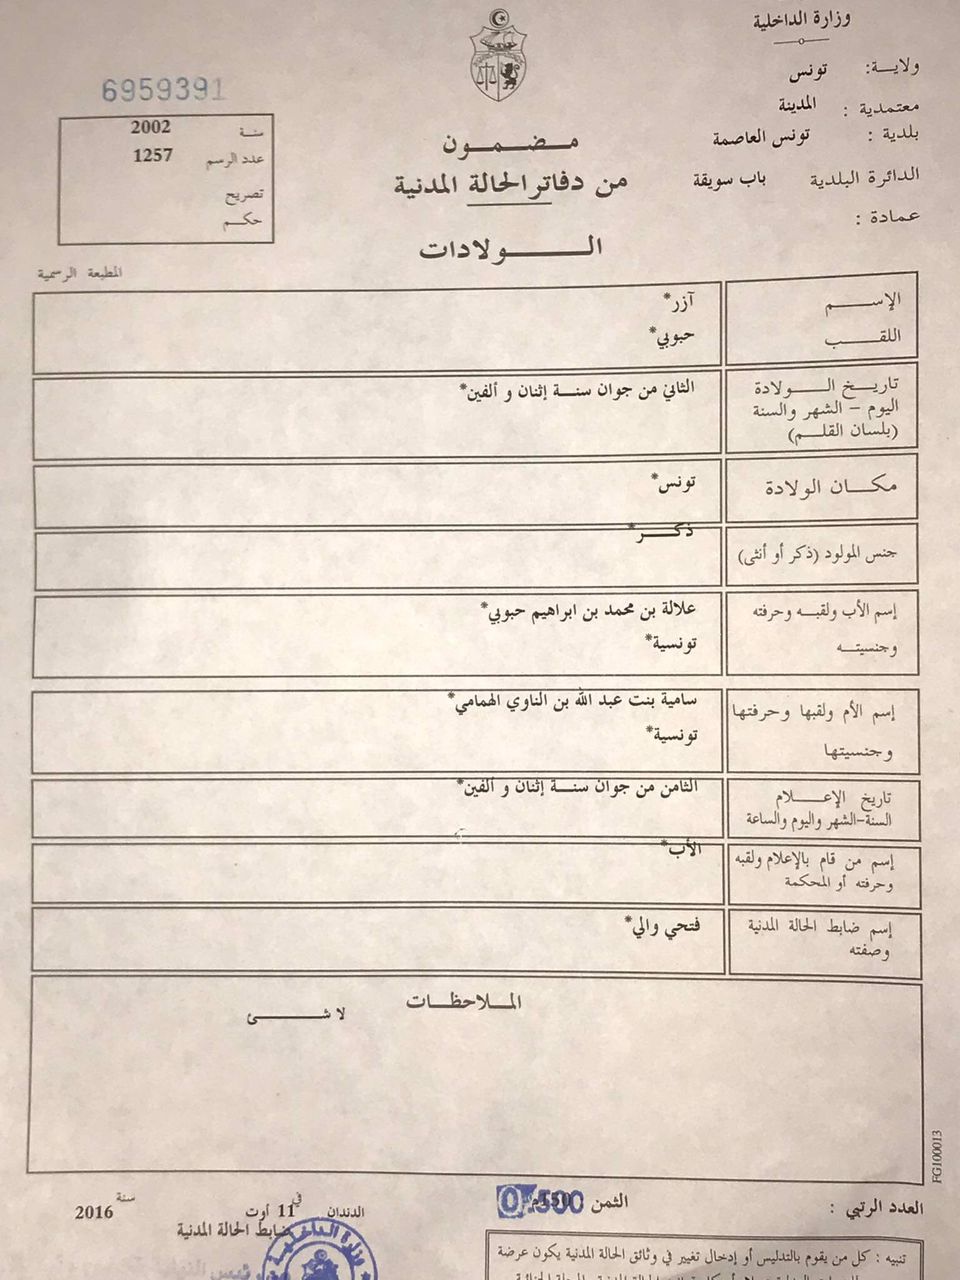 وزارة الداخلية
ولاية: تونس
معتمدية : المدينة
بلدية : تونس العاصمة
الدائرة البلدية باب سويقة
عمادة :
6959391
سنة 2002
عدد الرسم 1257
تصريح
حكم
المطبعة الرسمية
مضمون
من دفاتر الحالة المدنية
الولادات
الإسم آزر*
اللقب حبوبي*
تاريخ الولادة الثاني من جوان سنة إثنان و ألفين*
اليوم - الشهر والسنة
(بلسان القلم)
مكان الولادة تونس*
جنس المولود (ذكر أو أنثى) ذكر*
إسم الأب ولقبه وحرفته علالة بن محمد بن ابراهيم حبوبي*
وجنسيته تونسية*
إسم الأم ولقبها وحرفتها سامية بنت عبد الله بن الناوي الهمامي*
وجنسيتها تونسية*
تاريخ الإعلام الثامن من جوان سنة إثنان و ألفين*
السنة-الشهر واليوم والساعة
إسم من قام بالإعلام ولقبه الأب*
وحرفته أو المحكمة
إسم ضابط الحالة المدنية فتحي والي*
وصفته
الملاحظات
لا شئ
FG100013
العدد الرتبي :
الثمن 0,500
الدندان في 11 أوت سنة 2016
ضابط الحالة المدنية
وزارة الداخلية
تنبيه : كل من يقوم بالتدليس أو إدخال تغيير في وثائق الحالة المدنية يكون عرضة